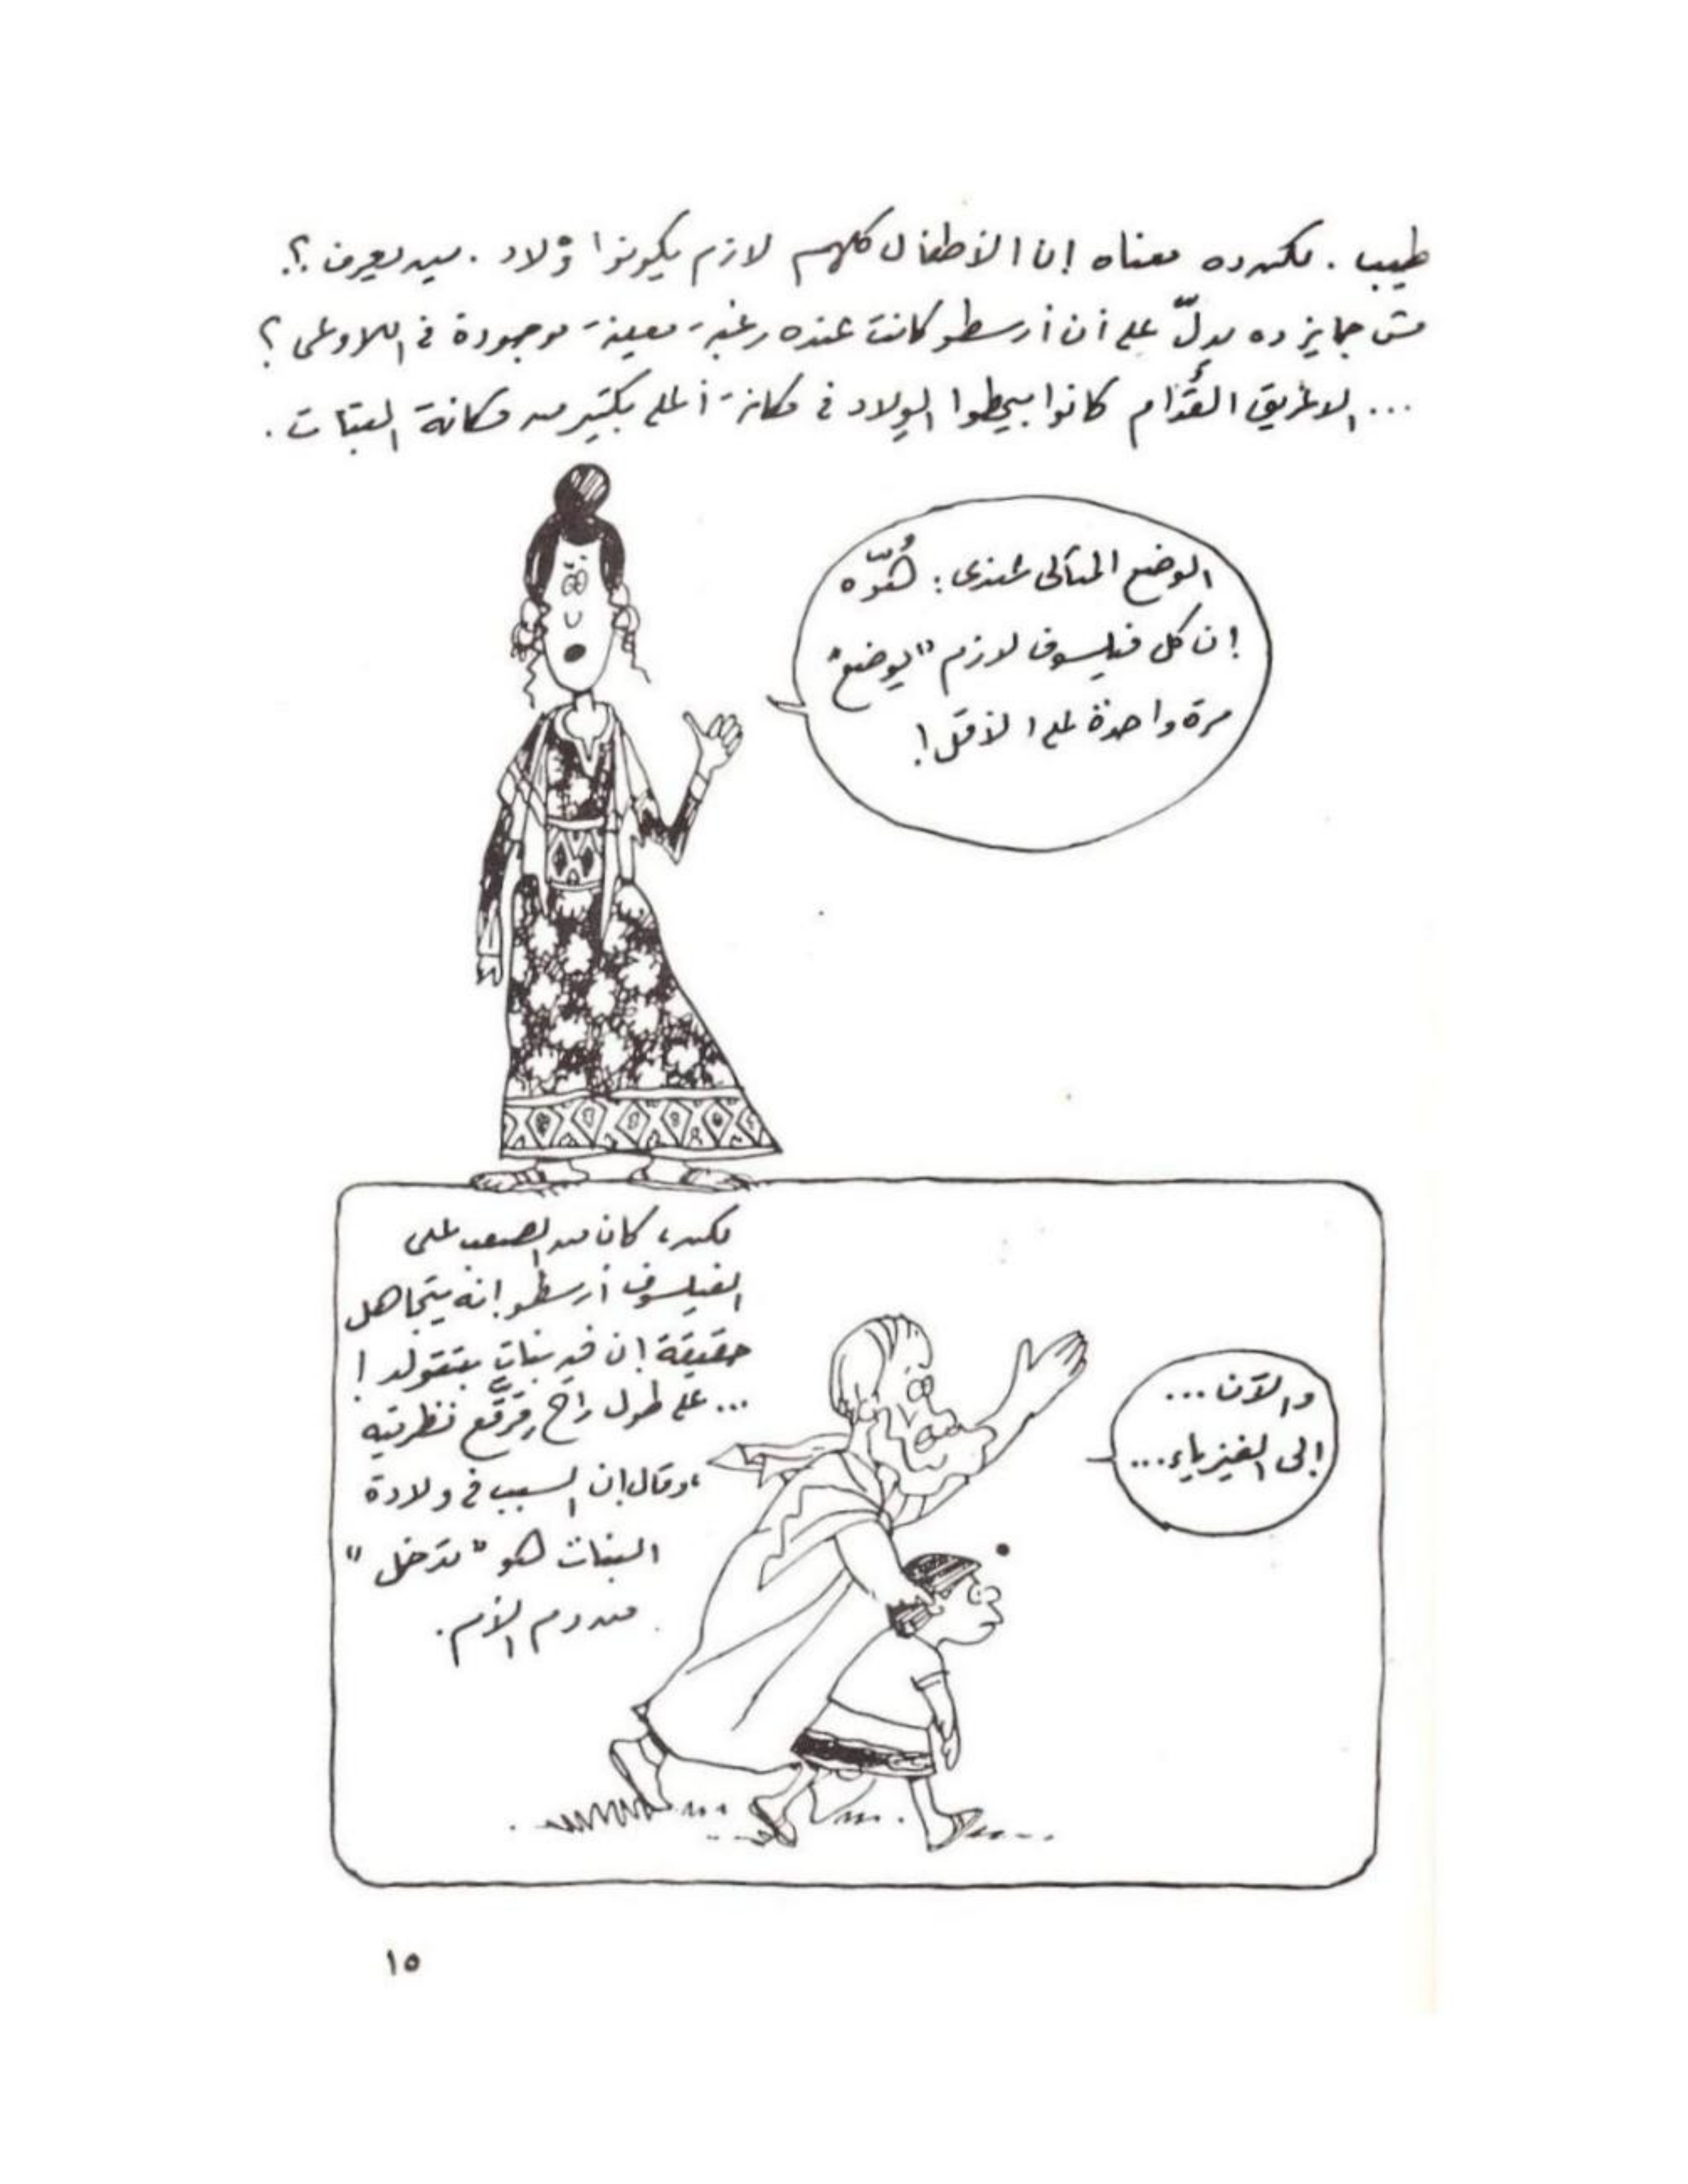 طيب . لكن ده معناه إن الأطفال كلهم لازم يكونوا وْلاد . مين يعرف ؟.
مش جايز ده يدلّ على أن أرسطو كانت عنده رغبة معينة موجودة في اللاوعى ؟
... الإغريق القُدَام كانوا بيحطوا الوِلاد في مكانة أعلى بكتير من مكانة البنات .
الوضع المثالى عندى : هُوّه
إن كل فيلسوف لازم "يوضع"
مرة واحدة على الأقل !
لكن ، كان من الصعب على
الفيلسوف أرسطو إنه يتجاهل
حقيقة إن فيه بنات بتتولد !
... على طول راح مرقّع نظريته
، وقال إن السبب في ولادة
البنات هو " تدخل "
من دم الأم .
والآن ...
إلى الفيزياء ...
١٥